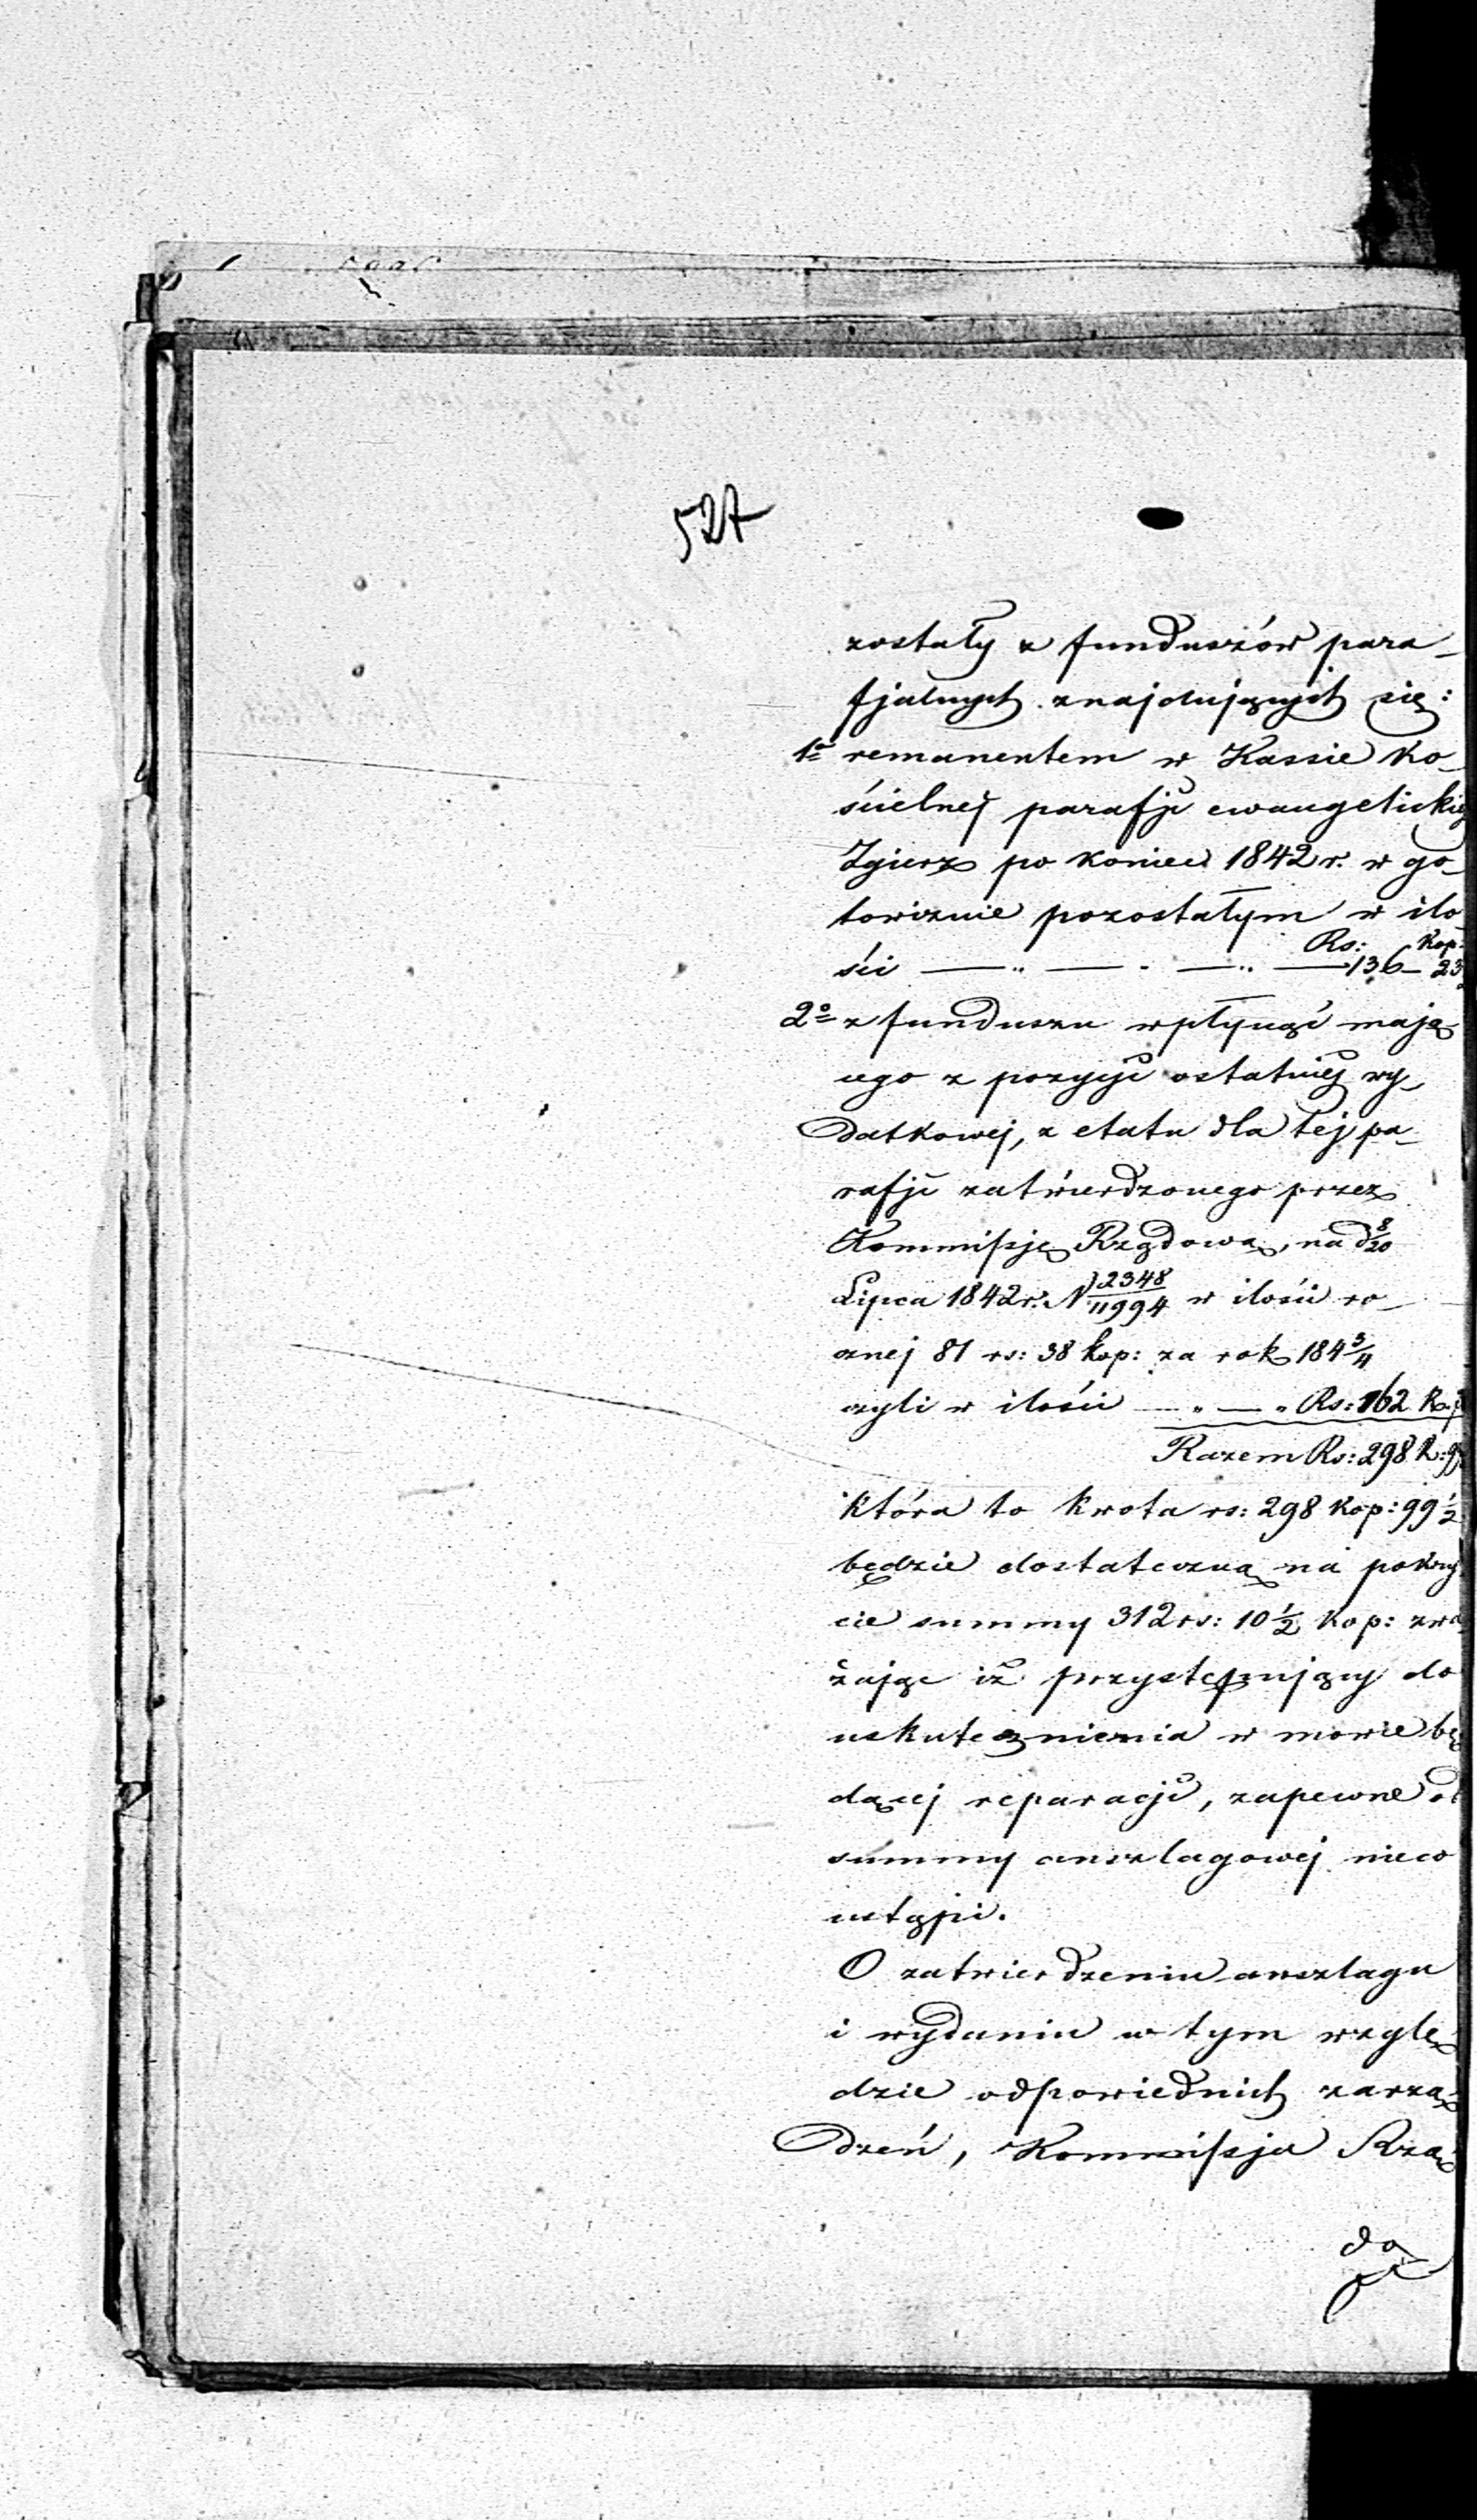 527
zostały z funduszów para-
fjalnych znajdujących się:
1o remanentem w Kassie Ko-
ścielnej parafji ewangelickiej
Zgierz po koniec 1842 r. w go-
towiznie pozostałym w ilo
Rs: Kop:
ści — „ — „ — „ — 136 — 23
2o z funduszu wpłynąć mają
cego z pozycji ostatniej wy-
datkowej, z etatu dla tej pa-
rafji zatwierdzonego przez
Kommissję Rządową, na d 8/20
Lipca 1842 r. N 2348/11994 w ilości ro-
cznej 81 rs: 38 kop: za rok 184 3/4
czyli w ilości — „ — „ Rs: 162 K
Razem Rs: 298 K: 99
która to kwota rs: 298 kop: 99 1/2
będzie dostateczną na pokry
cie summy 312 rs: 10 1/2 kop: zwa
żając iż przystępujący do
uskutecznienia w mowie bę
dącej reparacji, zapewne od
summy anszlagowej nieco
ustąpi.
O zatwierdzeniu anszlagu
i wydaniu w tym wzglę
dzie odpowiednich zarzą
dzeń, Kommissja Rzą
do